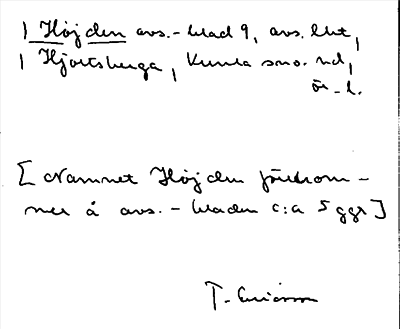 Höjden avs.-blad 9, avs. lht,
Hjortsberga, Kumla sn o. hd,
ör. l.
[Namnet Höjden förekom-
mer å avs.-bladen c:a 5 ggr]
T. Ericsson